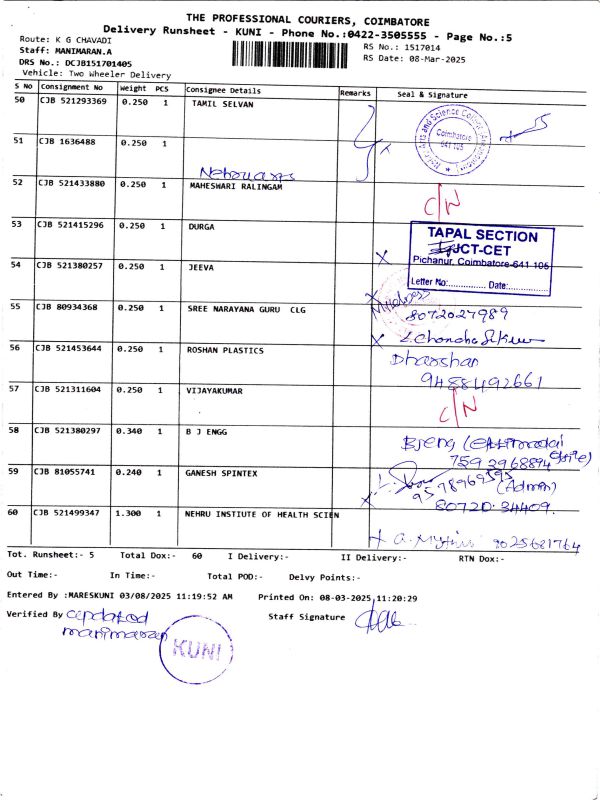 THE PROFESSIONAL COURIERS, COIMBATORE
Delivery Runsheet - KUNI - Phone No.:0422-3505555 - Page No.:5
Route: K G CHAVADI
RS No.: 1517014
Staff: MANIMARAN.A
RS Date: 08-Mar-2025
DRS No.: DCJB151701405
Vehicle: Two Wheeler Delivery
S No Consignment No Weight PCS Consignee Details Remarks Seal & Signature
50 CJB 521293369 0.250 1 TAMIL SELVAN
Coimbatore
641 105
51 CJB 1636488 0.250 1
52 CJB 521433880 0.250 1 MAHESWARI RALINGAM
C/N
53 CJB 521415296 0.250 1 DURGA
TAPAL SECTION
JCT-CET
Pichanur, Coimbatore-641 105
Letter No:............... Date:.............
54 CJB 521380257 0.250 1 JEEVA
55 CJB 80934368 0.250 1 SREE NARAYANA GURU CLG
8072027989
56 CJB 521453644 0.250 1 ROSHAN PLASTICS
Dharshan
9488492661
57 CJB 521311604 0.250 1 VIJAYAKUMAR
C/N
58 CJB 521380297 0.340 1 B J ENGG
59 CJB 81055741 0.240 1 GANESH SPINTEX
(Admin)
80720 34409
60 CJB 521499347 1.300 1 NEHRU INSTITUTE OF HEALTH SCIEN
Tot. Runsheet:- 5 Total Dox:- 60 I Delivery:- II Delivery:- RTN Dox:-
Out Time:- In Time:- Total POD:- Delvy Points:-
Entered By :MARESKUNI 03/08/2025 11:19:52 AM Printed On: 08-03-2025,11:20:29
Verified By updated
manimaran
Staff Signature
KUNI